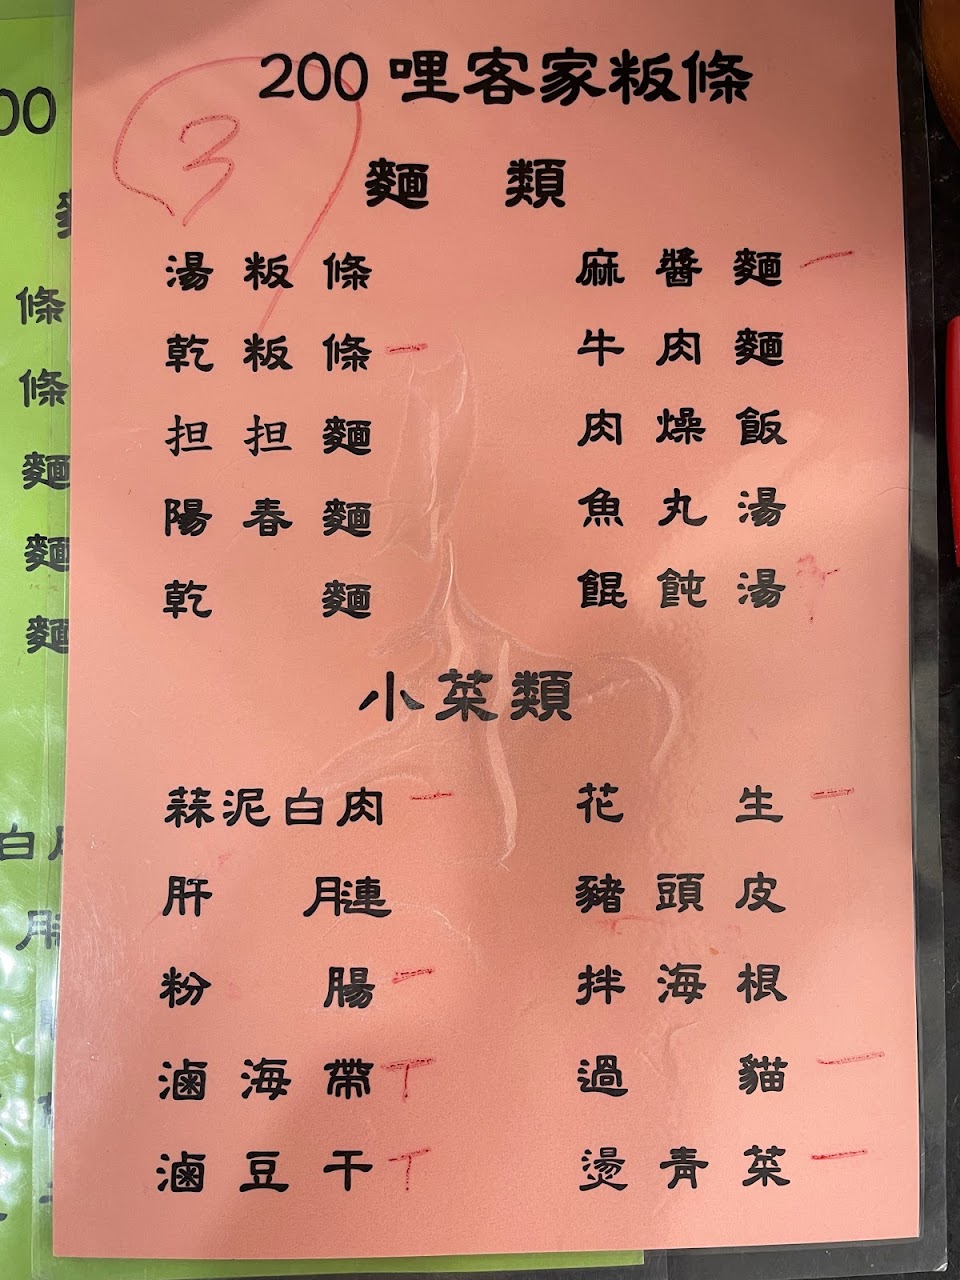 200哩客家粄條
3
麵 類
湯粄條 麻醬麵 一
乾粄條 一 牛肉麵
担担麵 肉燥飯
陽春麵 魚丸湯
乾麵 餛飩湯
小菜類
蒜泥白肉 一 花生 一
肝膁 豬頭皮
粉腸 一 拌海根
滷海帶 T 過貓 一
滷豆干 T 燙青菜 一
00
條
條
麵
麵
麵
白